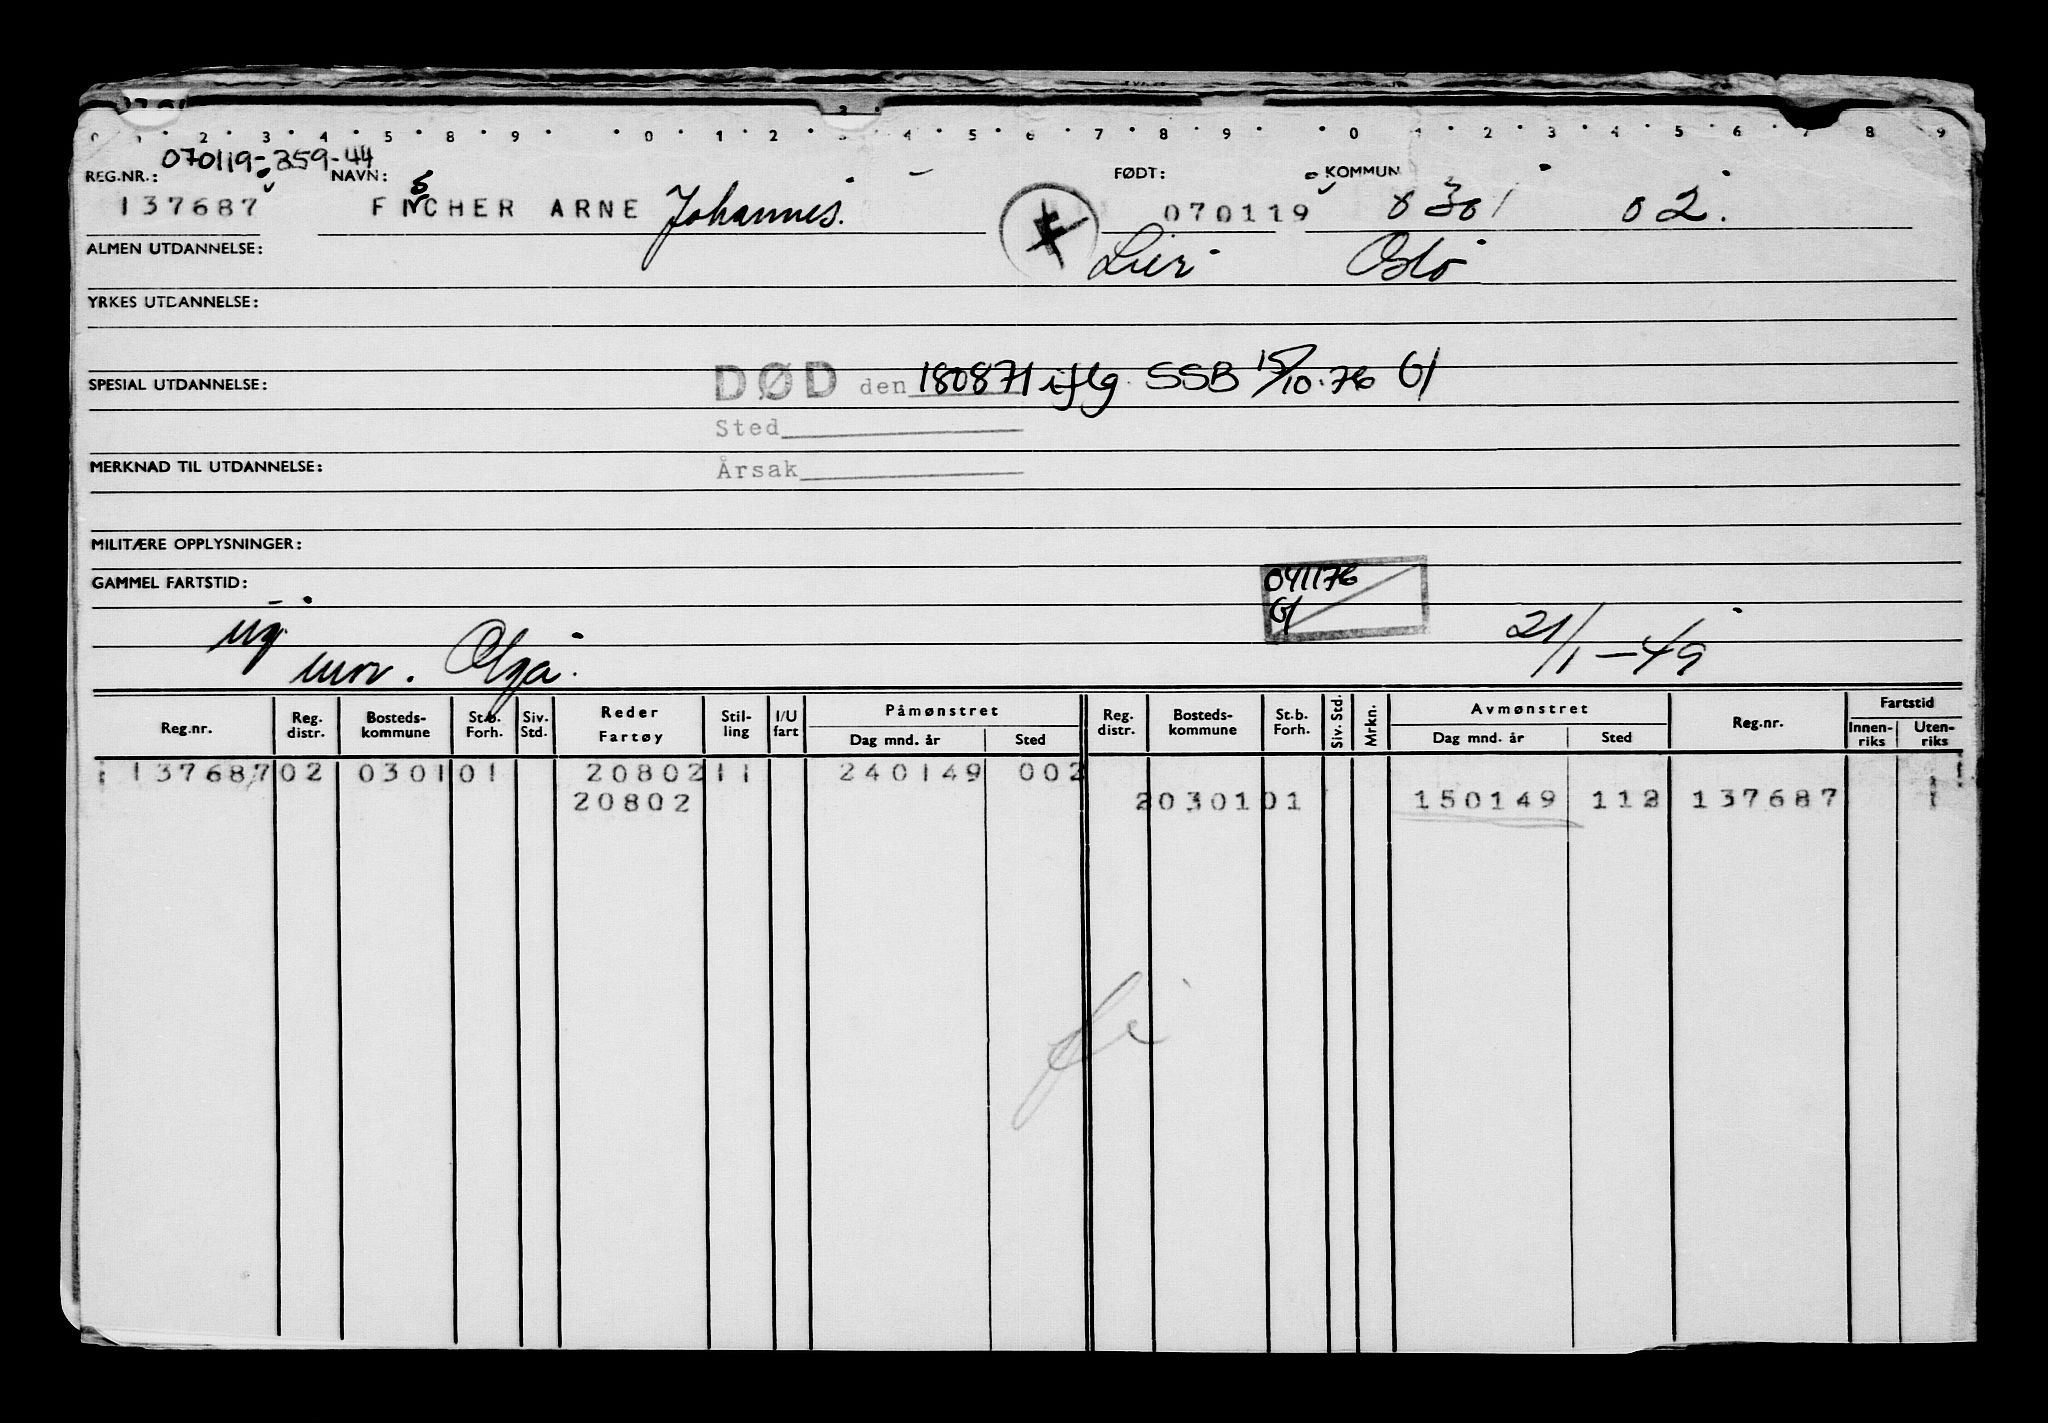 0 1 2 3 4 5 8 9 0 1 2 3 4 5 6 7 8 9 0 1 2 3 4 5 6 7 8 9
070119-359-44
REG.NR.: NAVN: FØDT: KOMMUN
s
137687 FINCHER ARNE Johannes. 070119 0301 02.
ALMEN UTDANNELSE: Lier Oslo
YRKES UTDANNELSE:
SPESIAL UTDANNELSE: DØD den 180871 iflg. SSB 15/10.76 GJ
Sted
MERKNAD TIL UTDANNELSE: Årsak
MILITÆRE OPPLYSNINGER:
GAMMEL FARTSTID: 041176
GJ
ug. 21/1-49
mor. Olga.
Reg.nr. Reg. distr. Bosteds-kommune St.b. Forh. Siv. Std. Reder Fartøy Stil-ling I/U fart Påmønstret Dag mnd. år Sted Reg. distr. Bosteds-kommune St.b. Forh. Siv. Std. Mrkn. Avmønstret Dag mnd. år Sted Reg.nr. Fartstid Innen-riks Uten-riks
137687 02 0301 01 20802 11 240149 002
20802 2 0301 01 150149 112 137687 1
fi